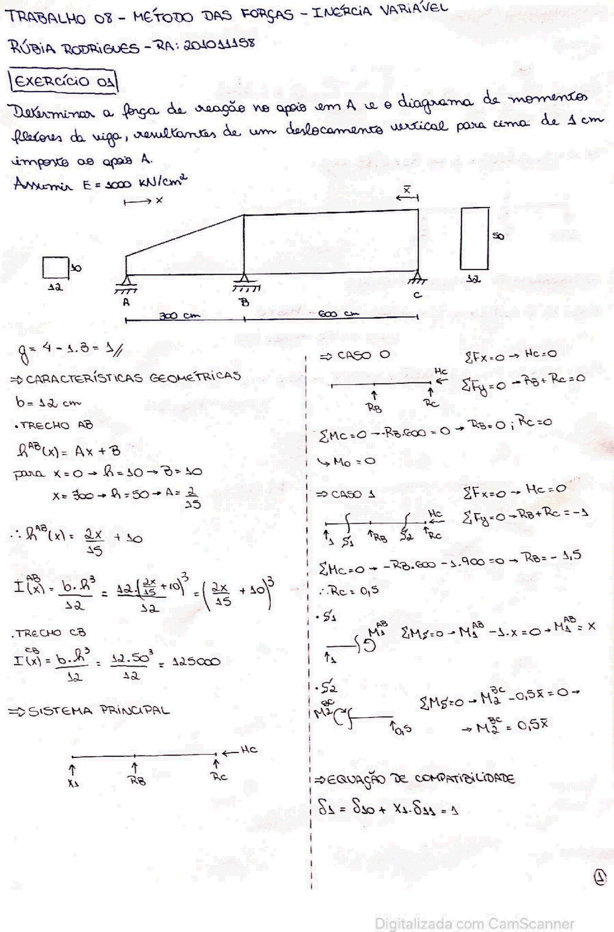 TRABALHO 08 - MÉTODO DAS FORÇAS - INÉRCIA VARIÁVEL
RÚBIA RODRIGUES - RA: 201011158
EXERCÍCIO 01
Determinar a força de reação no apoio em A e o diagrama de momentos
fletores da viga, resultantes de um deslocamento vertical para cima de 1 cm
imposto ao apoio A.
Assumir E = 1000 KN/cm²
x
x̄
10
12
A
B
C
50
12
300 cm
600 cm
g = 4 - 1.3 = 1 //
⇒ CARACTERÍSTICAS GEOMÉTRICAS
b = 12 cm
. TRECHO AB
h^AB(x) = Ax + B
para x = 0 → h = 10 → B = 10
x = 300 → h = 50 → A = 2/15
∴ h^AB(x) = 2x/15 + 10
I^AB(x) = b.h³/12 = 12.(2x/15 + 10)³/12 = (2x/15 + 10)³
. TRECHO CB
I^CB(x) = b.h³/12 = 12.50³/12 = 125000
⇒ SISTEMA PRINCIPAL
X1
RB
RC
HC
⇒ CASO 0
HC
RB
RC
ΣFx = 0 → HC = 0
ΣFy = 0 → RB + RC = 0
ΣMC = 0 → -RB.600 = 0 → RB = 0 ; RC = 0
↳ M0 = 0
⇒ CASO 1
ΣFx = 0 → HC = 0
ΣFy = 0 → RB + RC = -1
1
S1
RB
S2
HC
RC
ΣMC = 0 → -RB.600 - 1.900 = 0 → RB = -1,5
∴ RC = 0,5
. S1
1
M1^AB
ΣMS = 0 → M1^AB - 1.x = 0 → M1^AB = x
. S2
M2^BC
0,5
ΣMS = 0 → M2^BC - 0,5x̄ = 0 →
→ M2^BC = 0,5x̄
⇒ EQUAÇÃO DE COMPATIBILIDADE
δ1 = δ10 + X1.δ11 = 1
1
Digitalizada com CamScanner